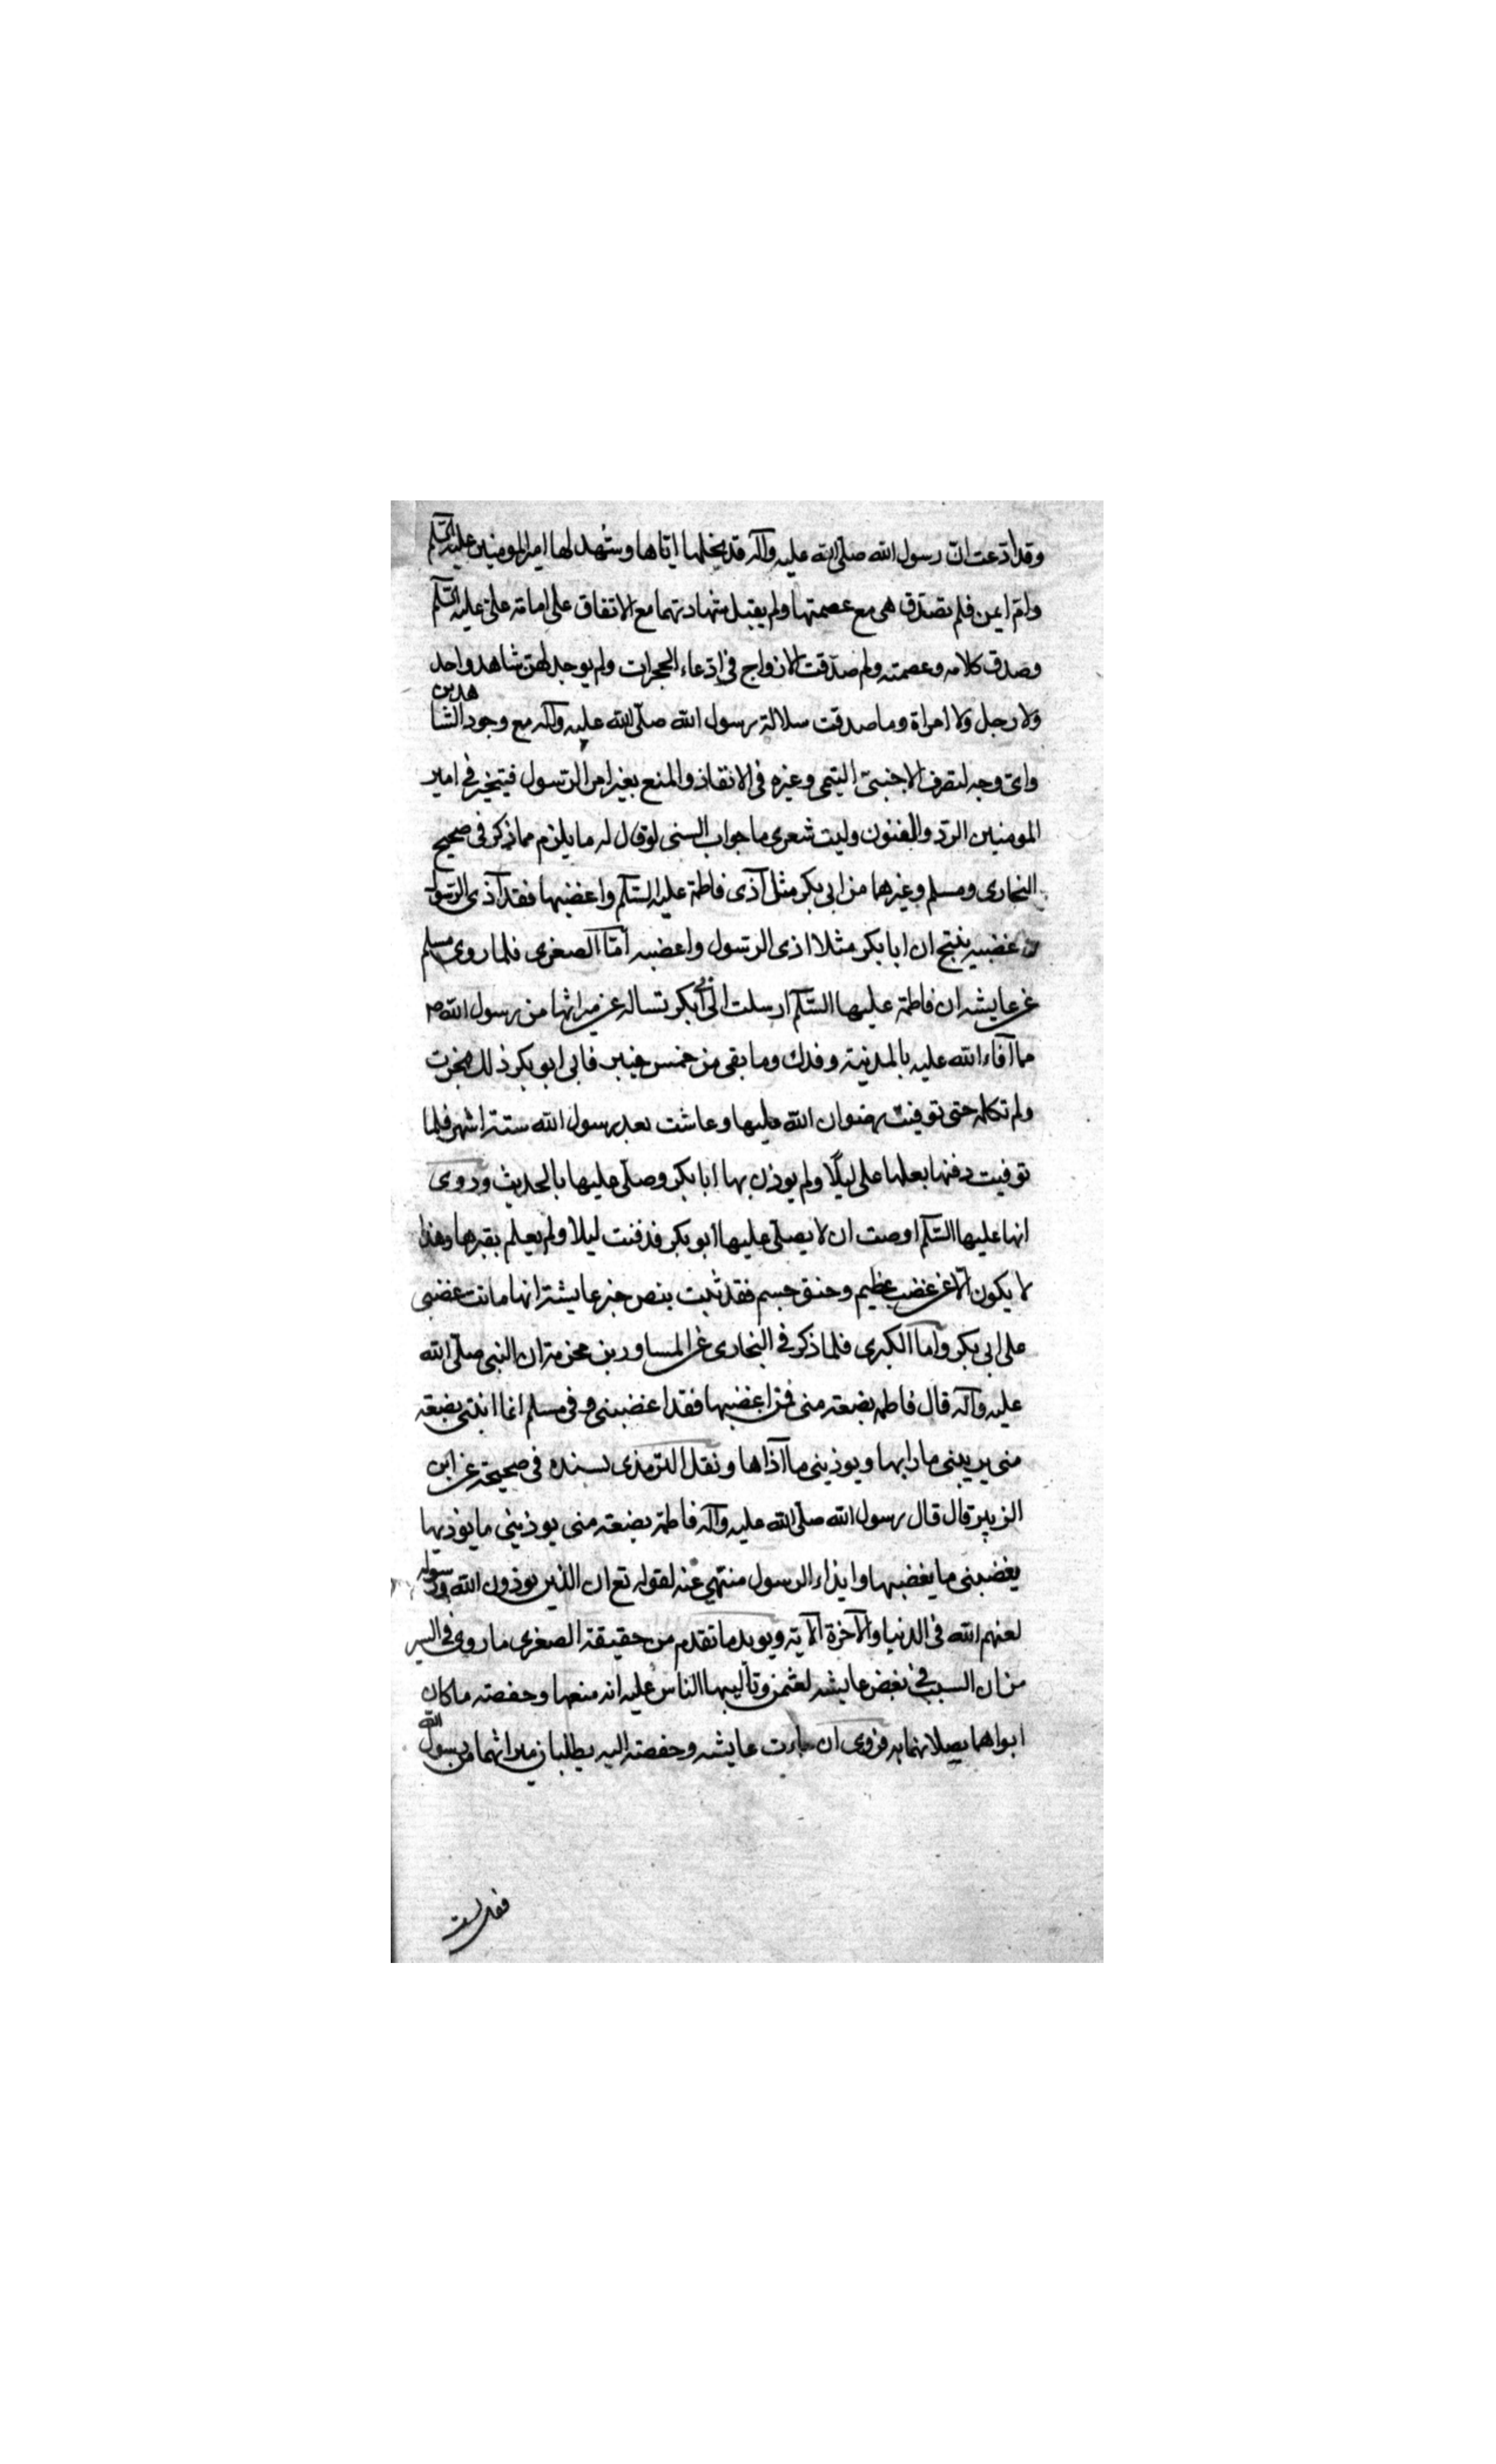 وقد ادعت ان رسول الله صلى الله عليه وآله قد نحلها اياها وشهد لها امير المومنين عليه السلم
وام ايمن فلم تصدق هى مع عصمتها ولم يقبل شهادتهما مع الاتفاق على امامة على عليه السلم
وصدق كلامه وعصمته ولم صدقت الازواج فى ادعاء الحجرات ولم يوجد لهن شاهد واحد
ولا رجل ولا امراة وما صدقت سلالة رسول الله صلى الله عليه وآله مع وجود الشاهدين
واى وجه لتصرف الاجنبى التيمى وغيره فى الانقاذ والمنع بغير امر الرسول فيتخير فى امير
المومنين الرد والفنون وليت شعرى ما جواب السنى لو قال له ما يلزم مما ذكر فى صحيح
البخارى ومسلم وغيرهما من ابى بكر مثل آذى فاطمة عليها السلم واغضبها فقد آذى الرسول
غضبه ينتج ان ابا بكر مثلا اذى الرسول واغضبه أمّا الصغرى فلما روى مسلم
عن عايشه ان فاطمة عليها السلم ارسلت الى أبى بكر تساله عن ميراثها من رسول الله ص
مما آفاء الله عليه بالمدينة وفدك وما بقى من خمس خيبر فابى ابو بكر ذلك فهجرت
ولم تكلمه حتى توفيت رضوان الله عليها وعاشت بعد رسول الله ستة اشهر فلما
توفيت دفنها بعلها على ليلًا ولم يوذن بها ابا بكر وصلى عليها بالحديث وروى
انها عليها السلم اوصت ان لا يصلى عليها ابو بكر فدفنت ليلا ولم يعلم بقبرها وهذا
لا يكون الّا عن غضب عظيم وحنق جسم فقد ثبت بنص خبر عايشة انها ماتت غضبى
على ابى بكر وأما الكبرى فلما ذكر فى البخارى عن المساور بن مخزمة ان النبى صلى الله
عليه وآله قال فاطمه بضعة منى فمن اغضبها فقد اغضبنى وفى مسلم انما ابنتى بضعة
منى يريبنى ما رابها ويوذينى ما آذاها ونقل الترمذى بسنده فى صحيحه عن ابن
الزبير قال قال رسول الله صلى الله عليه وآله فاطمة بضعة منى يوذينى ما يوذيها
يغضبنى ما يغضبها وايذاء الرسول منتهى عنه لقوله تع ان الذين يوذون الله ورسوله
لعنهم الله فى الدنيا والآخرة الآية ويويد ما تقدم من حقيقة الصغرى ما روى فى السير
من ان السبب فى بغض عايشه لعثمن وتأليبها الناس عليه انه منعها وحفصة ما كان
ابواهما يصلانهما به فروى ان جاءت عايشه وحفصة اليه يطلبان ميراثهما من رسول الله
فقد لست